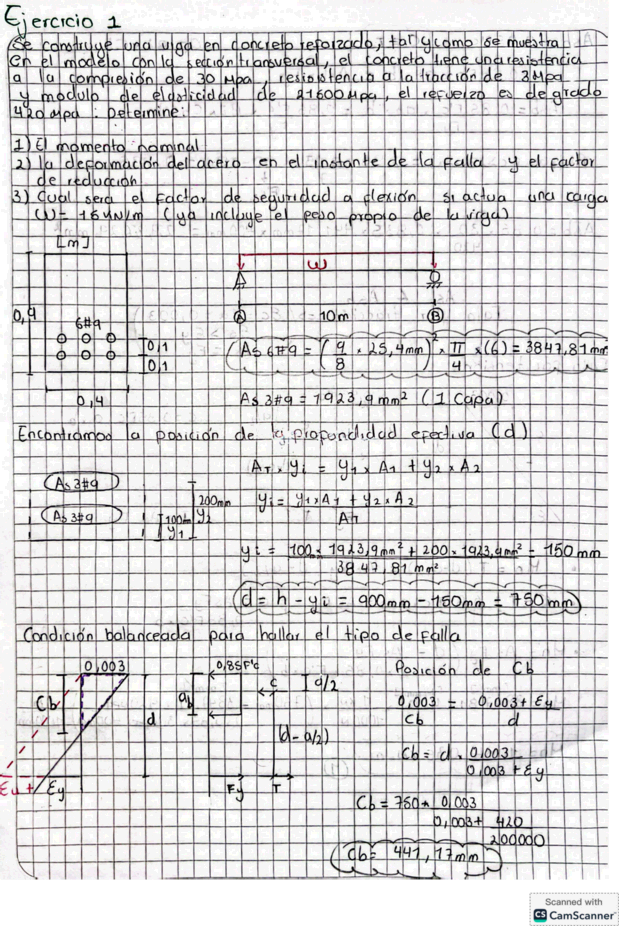 Ejercicio 1
Se construye una viga en concreto reforzado, tal y como se muestra
en el modelo con la sección transversal, el concreto tiene una resistencia
a la compresión de 30 Mpa, resistencia a la tracción de 3 Mpa
y modulo de elasticidad de 21600 Mpa, el refuerzo es de grado
420 Mpa. Determine:
1) El momento nominal
2) la deformación del acero en el instante de la falla y el factor
de reducción
3) Cual será el factor de seguridad a flexión si actua una carga
W= 16 kN/m (ya incluye el peso propio de la viga)
[m]
W
6#9
0,9
0,1
0,1
0,4
A
10m
B
As 6#9 = (9/8 × 25,4mm)² × π/4 ×(6) = 3847,81 mm
As 3#9 = 1923,9 mm² (1 Capa)
Encontramos la posición de la profundidad efectiva (d)
As 3#9
As 3#9
200mm
y2
100
y1
AT × yi = y1 × A1 + y2 × A2
yi = y1 × A1 + y2 × A2 / AT
yi = 100 × 1923,9 mm² + 200 × 1923,9 mm² / 3847,81 mm² = 150 mm
d = h - yi = 900mm - 150mm = 750 mm
Condición balanceada para hallar el tipo de falla
0,003
Cb
d
Ey
0,85F'c
ab
c
a/2
(d-a/2)
Fy
T
Posición de Cb
0,003 / Cb = 0,003 + Ey / d
Cb = d . 0,003 / 0,003 + Ey
Cb = 750 * 0,003 / 0,003 + 420 / 200000
Cb = 441,17mm
Scanned with
CS CamScanner